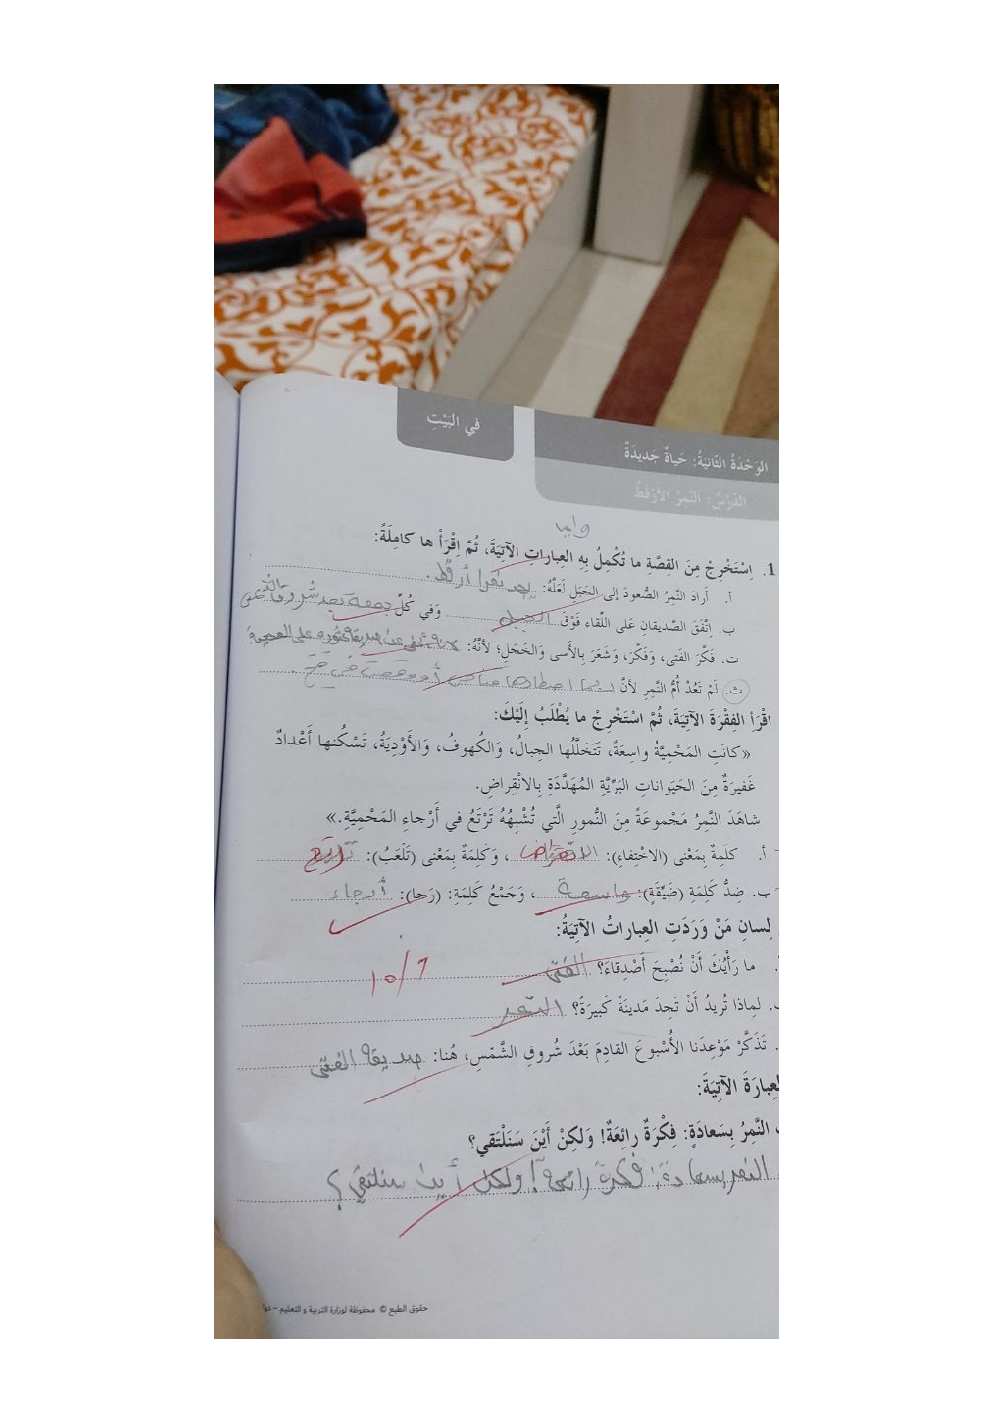 في البَيْتِ
الوَحْدَةُ الثّانيَةُ: حَياةٌ جَديدَةٌ
الدَّرْسُ: النَّمِرُ الأَرْقَطُ
واجب
1. اِسْتَخْرِجْ مِنَ القصَّةِ ما تُكْمِلُ بِهِ العِباراتِ الآتِيَةَ، ثُمَّ اقْرَأْ ها كامِلَةً:
أ. أَرادَ النَّمِرُ الصُّعودَ إلى الجَبَلِ لَعَلَّهُ: يجد نمرا أرقط.
ب. اِتَّفَقَ الصَّديقانِ عَلى اللِّقاءِ فَوْقَ الجبل وَفي كُلِّ جمعة بعد شروق الشمس
ت. فَكَّرَ الفَتى، وَفَكَّرَ، وَشَعَرَ بِالأَسى وَالخَجَلِ؛ لأَنَّهُ:
ث. لَمْ تَعُدْ أُمُّ النَّمِرِ لأنَّ
اقْرَأِ الفِقْرَةَ الآتِيَةَ، ثُمَّ اسْتَخْرِجْ ما يُطْلَبُ إِلَيْكَ:
«كانَتِ المَحْمِيَّةُ واسِعَةً، تَتَخَلَّلُها الجِبالُ، وَالكُهوفُ، وَالأَوْدِيَةُ، تَسْكُنها أَعْدادٌ
غَفيرَةٌ مِنَ الحَيَواناتِ البَرِّيَّةِ المُهَدَّدَةِ بِالانْقِراضِ.
شاهَدَ النَّمِرُ مَجْموعَةً مِنَ النُّمورِ الَّتي تُشْبِهُهُ تَرْتَعُ في أَرْجاءِ المَحْمِيَّةِ.»
أ. كَلِمَةٌ بِمَعْنى (الاخْتفاءِ): الانقراض، وَكَلِمَةٌ بِمَعْنى (تَلْعَبُ): ترتع
ب. ضِدُّ كَلِمَةِ (ضَيِّقَةٍ): واسعة، وَجَمْعُ كَلِمَةِ: (رَحا): أرجاء
لِسانِ مَنْ وَرَدَتِ العِباراتُ الآتِيَةُ:
ما رَأْيُكَ أَنْ نُصْبِحَ أَصْدِقاءَ؟ الفتى
10/7
لِماذا تُريدُ أَنْ تَجِدَ مَدينَةً كَبيرَةً؟ النمر
تَذَكَّرْ مَوْعِدَنا الأُسْبوعَ القادِمَ بَعْدَ شُروقِ الشَّمْسِ، هُنا: صديقه الفتى
العِبارَةَ الآتِيَةَ:
النَّمِرُ بِسَعادَةٍ: فِكْرَةٌ رائِعَةٌ! وَلكِنْ أَيْنَ سَنَلْتَقي؟
النمر بسعادة: فكرة رائعة! ولكن أين سنلتقي؟
حقوق الطبع © محفوظة لوزارة التربية و التعليم -